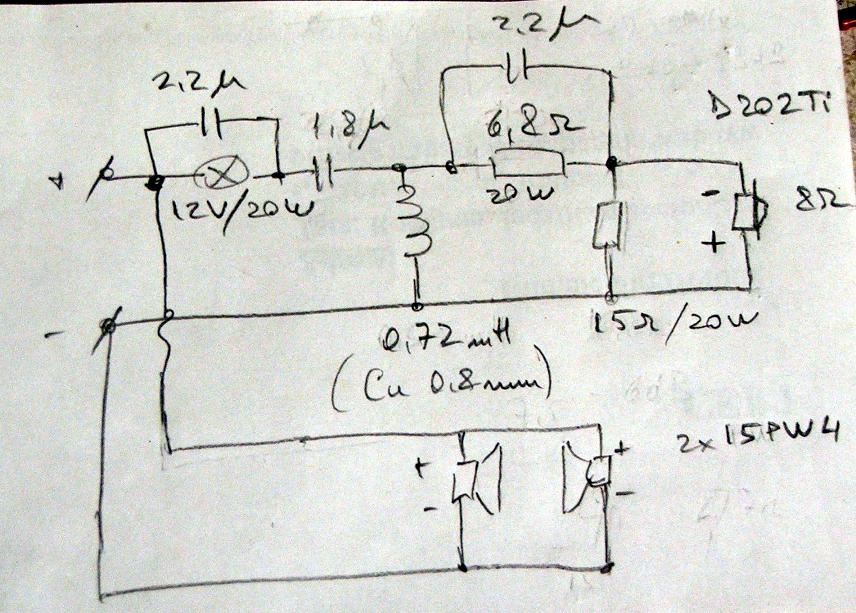 2,2μ
2,2μ
D202Ti
1,8μ
6,8Ω
+
12V/20W
20W
-
+
8Ω
-
15Ω/20W
0,72mH
(Cu 0,8mm)
2x15PW4
+
-
+
-